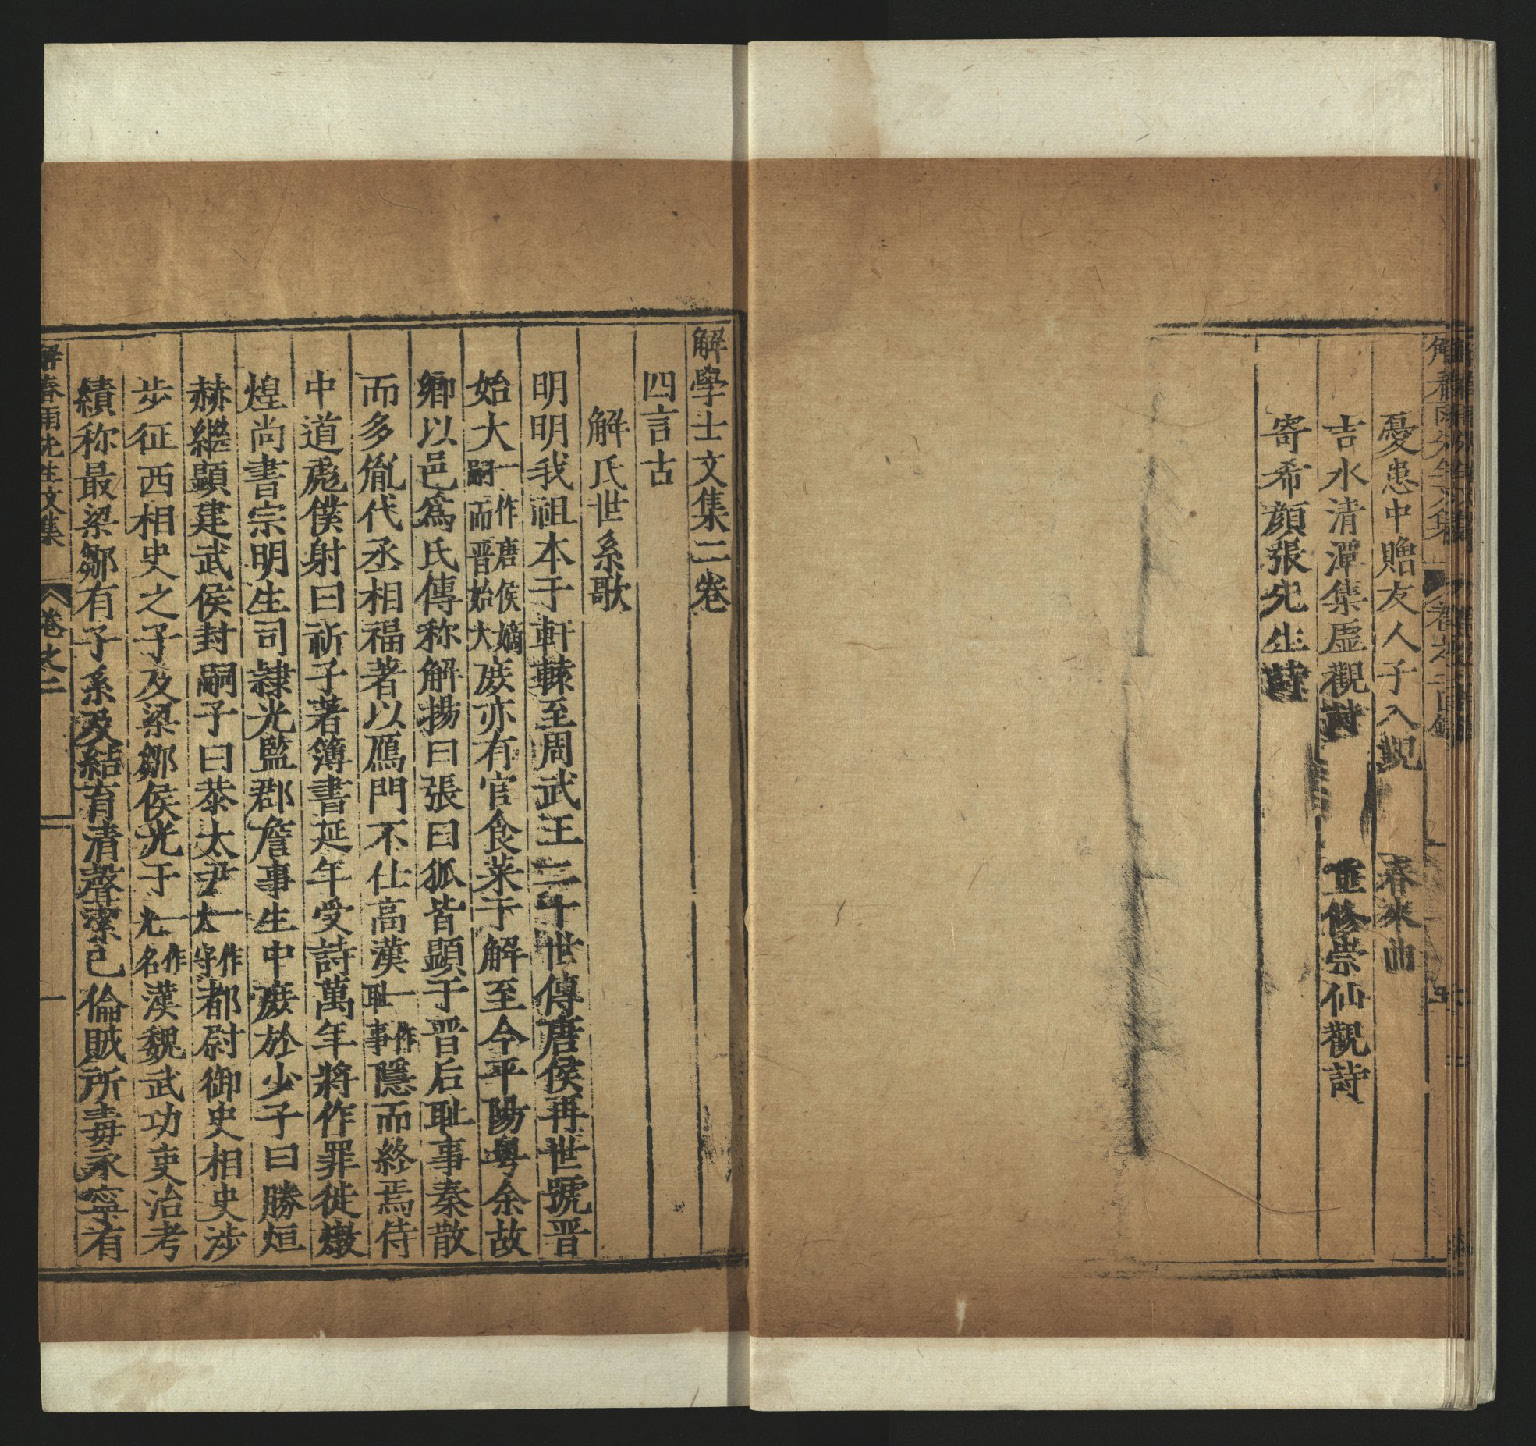 憂患中贈友人子入覲　春來曲
吉水清潭集虛觀詩　重修崇仙觀詩
寄希顔張先生詩
解學士文集二卷
四言古
解氏世系歌
明明我祖本于軒轅至周武王二十世傳唐侯再世號晋
始大一作唐侯嫡嗣而晋始大庻亦有官食菜于解至今平陽粤余故
卿以邑爲氏傳称解揚曰張曰狐皆顯于晋后耻事秦散
而多胤代丞相福著以鴈門不仕高漢一作耻事隱而終焉侍
中道彪僕射曰祈子著簿書延年受詩萬年將作罪徙燉
煌尚書宗明生司隷光監郡詹事生中庻於少子曰勝烜
赫繼顯建武侯封嗣子曰恭太尹一作太守都尉御史相史渉
步征西相史之子及梁鄒侯光于一作尤名漢魏武功吏治考
績称最梁鄒有子系及結育清聲潔己倫賊所毒永寧有
解春雨先生文集　卷之二　一